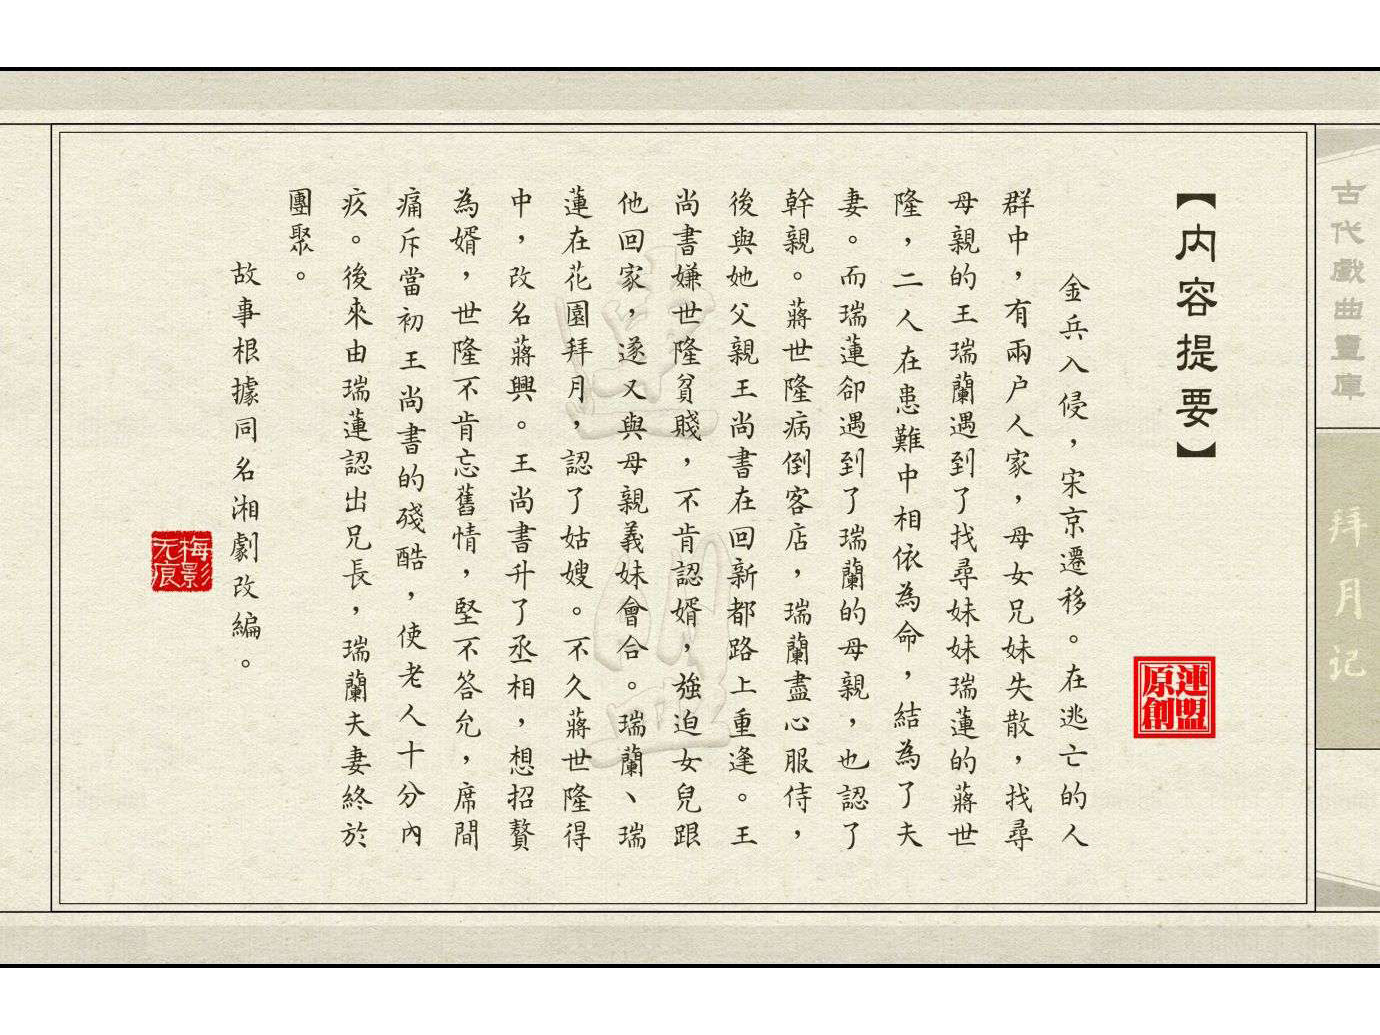 古代戲曲寶庫
拜月记
【内容提要】
連盟
原創
金兵入侵，宋京遷移。在逃亡的人
群中，有兩户人家，母女兄妹失散，找尋
母親的王瑞蘭遇到了找尋妹妹瑞蓮的蔣世
隆，二人在患難中相依為命，結為了夫
妻。而瑞蓮卻遇到了瑞蘭的母親，也認了
幹親。蔣世隆病倒客店，瑞蘭盡心服侍，
後與她父親王尚書在回新都路上重逢。王
尚書嫌世隆貧賤，不肯認婿，強迫女兒跟
他回家，遂又與母親義妹會合。瑞蘭、瑞
蓮在花園拜月，認了姑嫂。不久蔣世隆得
中，改名蔣興。王尚書升了丞相，想招贅
為婿，世隆不肯忘舊情，堅不答允，席間
痛斥當初王尚書的殘酷，使老人十分內
疚。後來由瑞蓮認出兄長，瑞蘭夫妻終於
團聚。
故事根據同名湘劇改編。
梅影
无痕
連盟